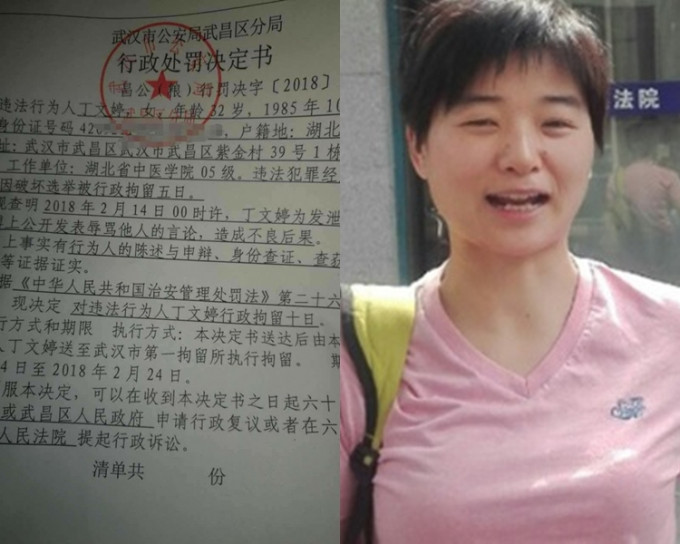 武汉市公安局武昌区分局
行政处罚决定书
昌公(粮)行罚决字〔2018〕
违法行为人丁文婷,女,年龄32岁,1985年10
身份证号码 420 ,户籍地:湖北
址:武汉市武昌区武汉市武昌区紫金村39号1栋
工作单位:湖北省中医学院05级。违法犯罪经
因破坏选举被行政拘留五日。
现查明2018年2月14日00时许,丁文婷为发泄
上公开发表辱骂他人的言论,造成不良后果。
上事实有行为人的陈述与申辩、身份查证、查获
等证据证实。
据《中华人民共和国治安管理处罚法》第二十六
现决定 对违法行为人丁文婷行政拘留十日。
行方式和期限 执行方式:本决定书送达后由本
人丁文婷送至武汉市第一拘留所执行拘留。 期
4日至2018年2月24日。
服本决定,可以在收到本决定书之日起六十
或武昌区人民政府 申请行政复议或者在六
人民法院 提起行政诉讼。
清单共 份
法院